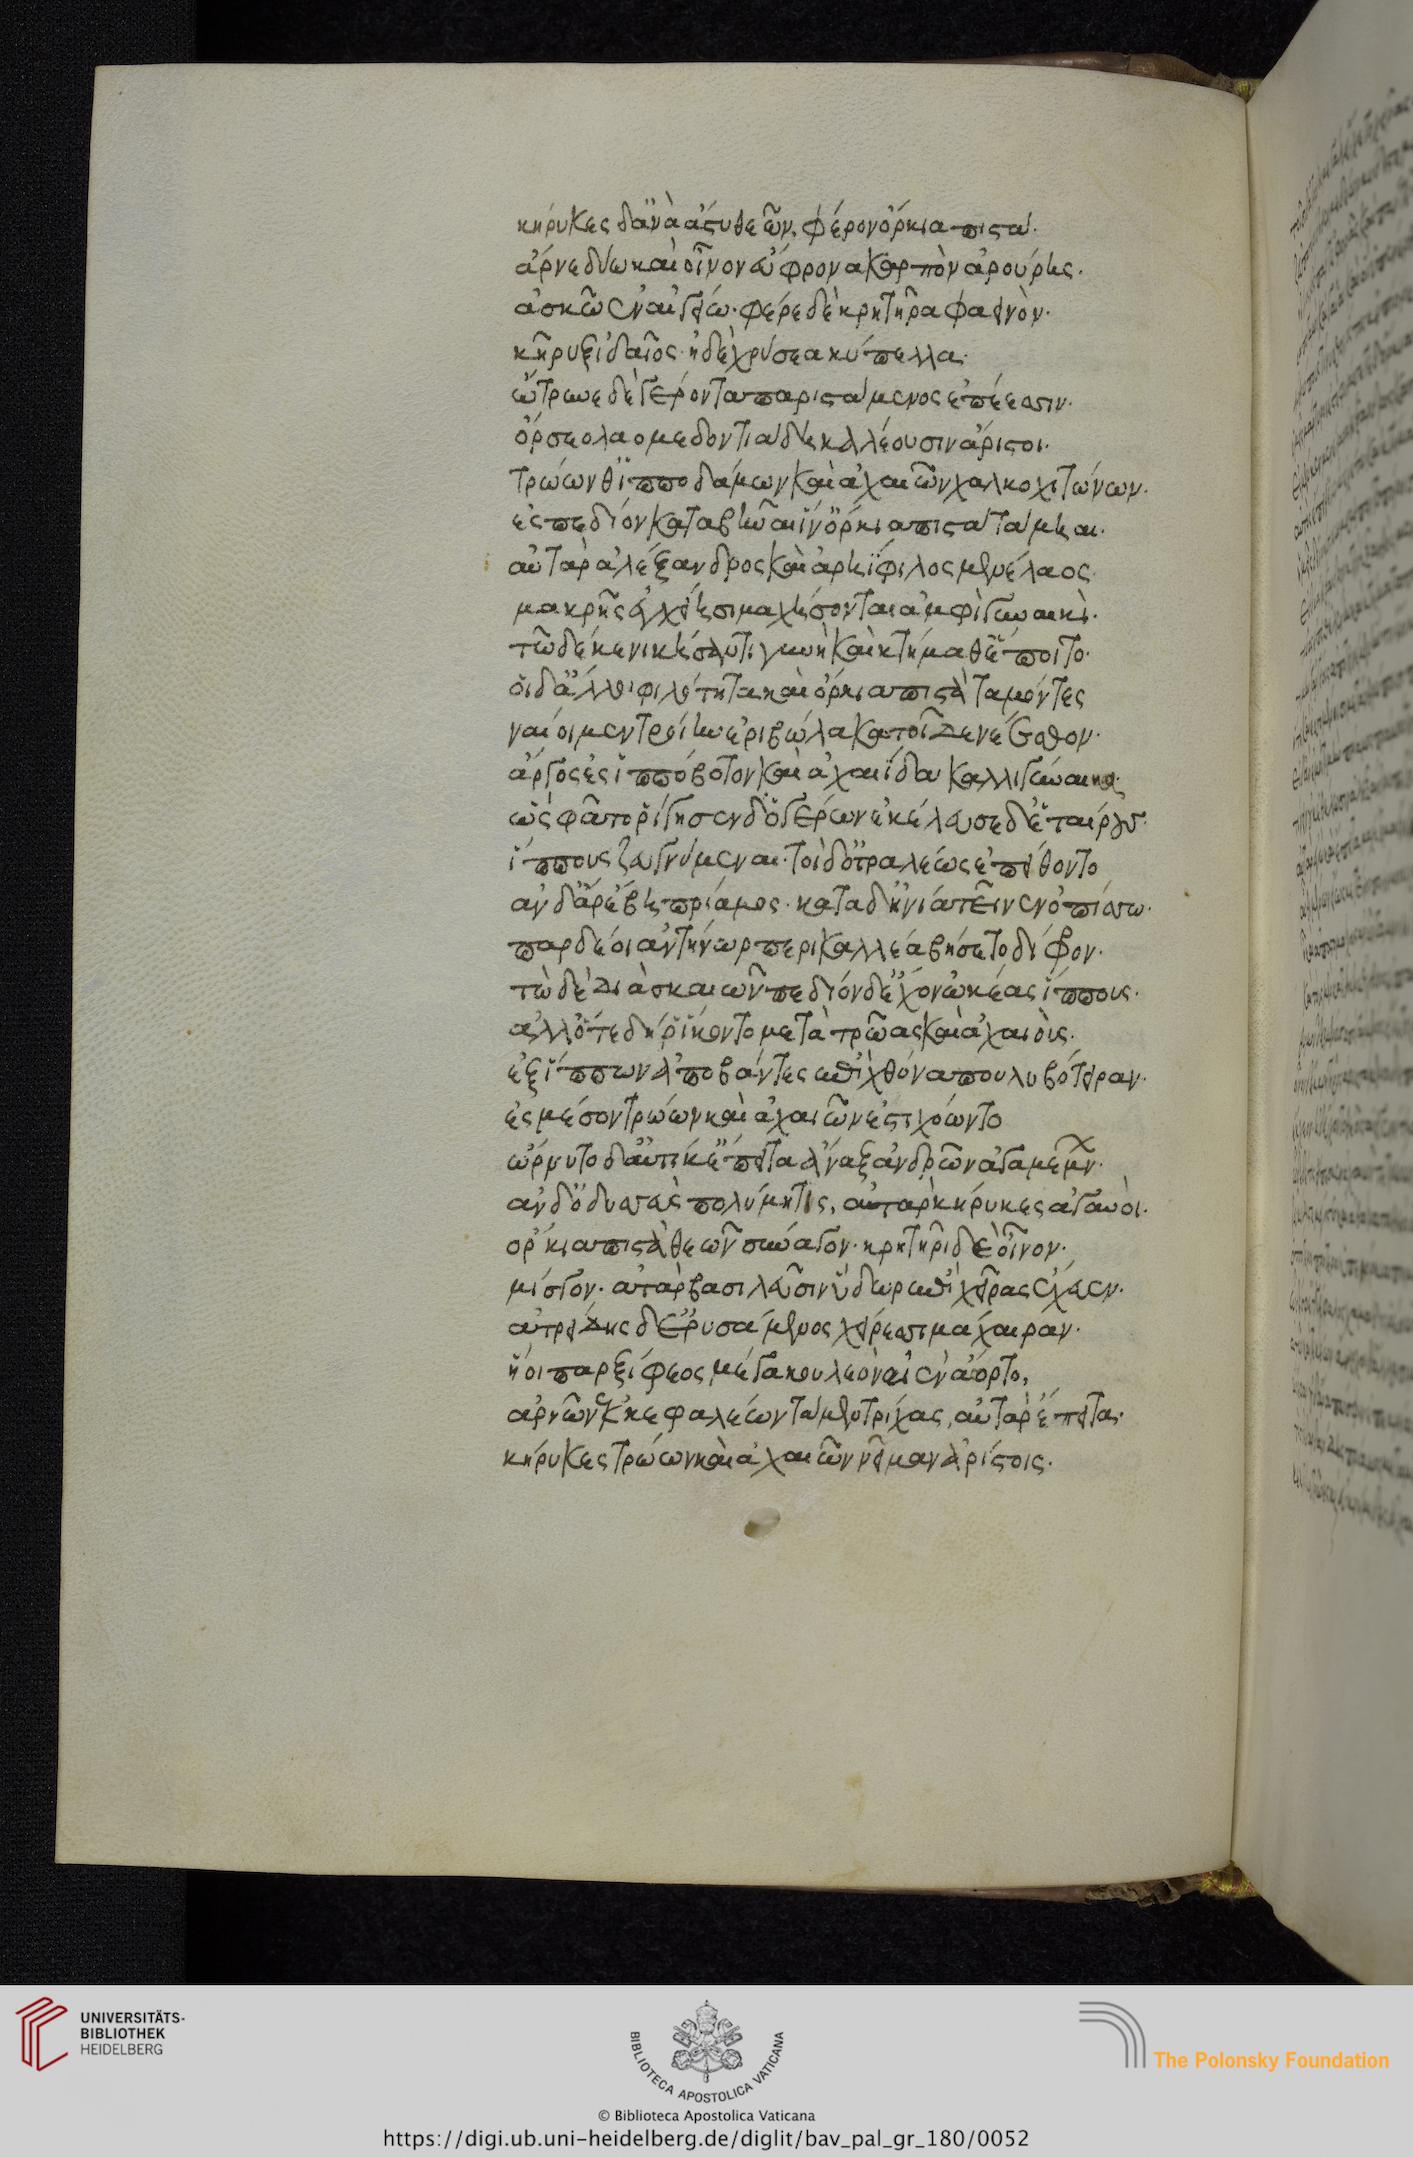 κήρυκες δ' ἀνὰ ἄστυ θεῶν, φέρον ὅρκια πιστά.
ἄρνε δύω καὶ οἶνον εὔφρονα καρπὸν ἀρούρης.
ἀσκῶ ἐν αἰγείω. φέρε δὲ κρητῆρα φαεινὸν.
κῆρυξ ἰδαῖος. ἠδὲ χρύσεα κύπελλα.
ὤτρυνε δὲ γέροντα παριστάμενος ἐπέεσσιν.
ὄρσεο λαομεδοντιάδη καλέουσιν ἄριστοι.
τρώων θ' ἱπποδάμων καὶ ἀχαιῶν χαλκοχιτώνων.
ἐς πεδίον καταβῆναι ἵν' ὅρκια πιστὰ τάμηαι.
αὐτὰρ ἀλέξανδρος καὶ ἀρηΐφιλος μενέλαος.
μακρῆς ἐγχείησι μαχήσονται ἀμφὶ γυναικὶ.
τῶ δέ κε νικήσαντι γυνὴ καὶ κτήμαθ' ἕποιτο.
οἱ δ' ἄλλοι φιλότητα καὶ ὅρκια πιστὰ ταμόντες
ναίοιμεν τροίην ἐριβώλακα τοὶ δὲ νέονται
ἄργος ἐς ἱππόβοτον καὶ ἀχαιΐδα καλλιγύναικα.
ὣς φάτο ῥίγησεν δ' ὁ γέρων ἐκέλευσε δ' ἑταίρους
ἵππους ζευγνύμεναι. τοὶ δ' ὀτραλέως ἐπείθοντο
ἂν δ' ἄρ' ἔβη πρίαμος. κατὰ δ' ἡνία τεῖνεν ὀπίσσω.
παρ δέ οἱ ἀντήνωρ περικαλλέα βήσετο δίφρον.
τὼ δὲ διὰ σκαιῶν πεδίονδ' ἔχον ὠκέας ἵππους.
ἀλλ' ὅτε δή ῥ' ἵκοντο μετὰ τρῶας καὶ ἀχαιοὺς.
ἐξ ἵππων ἀποβάντες ἐπὶ χθόνα πουλυβότειραν.
ἐς μέσον τρώων καὶ ἀχαιῶν ἐστιχόωντο
ὤρνυτο δ' αὐτίκ' ἔπειτα ἄναξ ἀνδρῶν ἀγαμέμνων.
ἂν δ' ὀδυσεὺς πολύμητις, αὐτὰρ κήρυκες ἀγαυοὶ.
ὅρκια πιστὰ θεῶν σύναγον. κρητῆρι δὲ οἶνον.
μίσγον. ἀτὰρ βασιλεῦσιν ὕδωρ ἐπὶ χεῖρας ἔχευεν.
ἀτρείδης δὲ ἐρυσσάμενος χείρεσσι μάχαιραν.
ἥ οἱ παρ ξίφεος μέγα κουλεὸν αἰὲν ἄορτο,
ἀρνῶν ἐκ κεφαλέων τάμνε τρίχας, αὐτὰρ ἔπειτα.
κήρυκες τρώων καὶ ἀχαιῶν νεῖμαν ἀρίστοις.
UNIVERSITÄTS-
BIBLIOTHEK
HEIDELBERG
BIBLIOTECA APOSTOLICA VATICANA
The Polonsky Foundation
© Biblioteca Apostolica Vaticana
https://digi.ub.uni-heidelberg.de/diglit/bav_pal_gr_180/0052